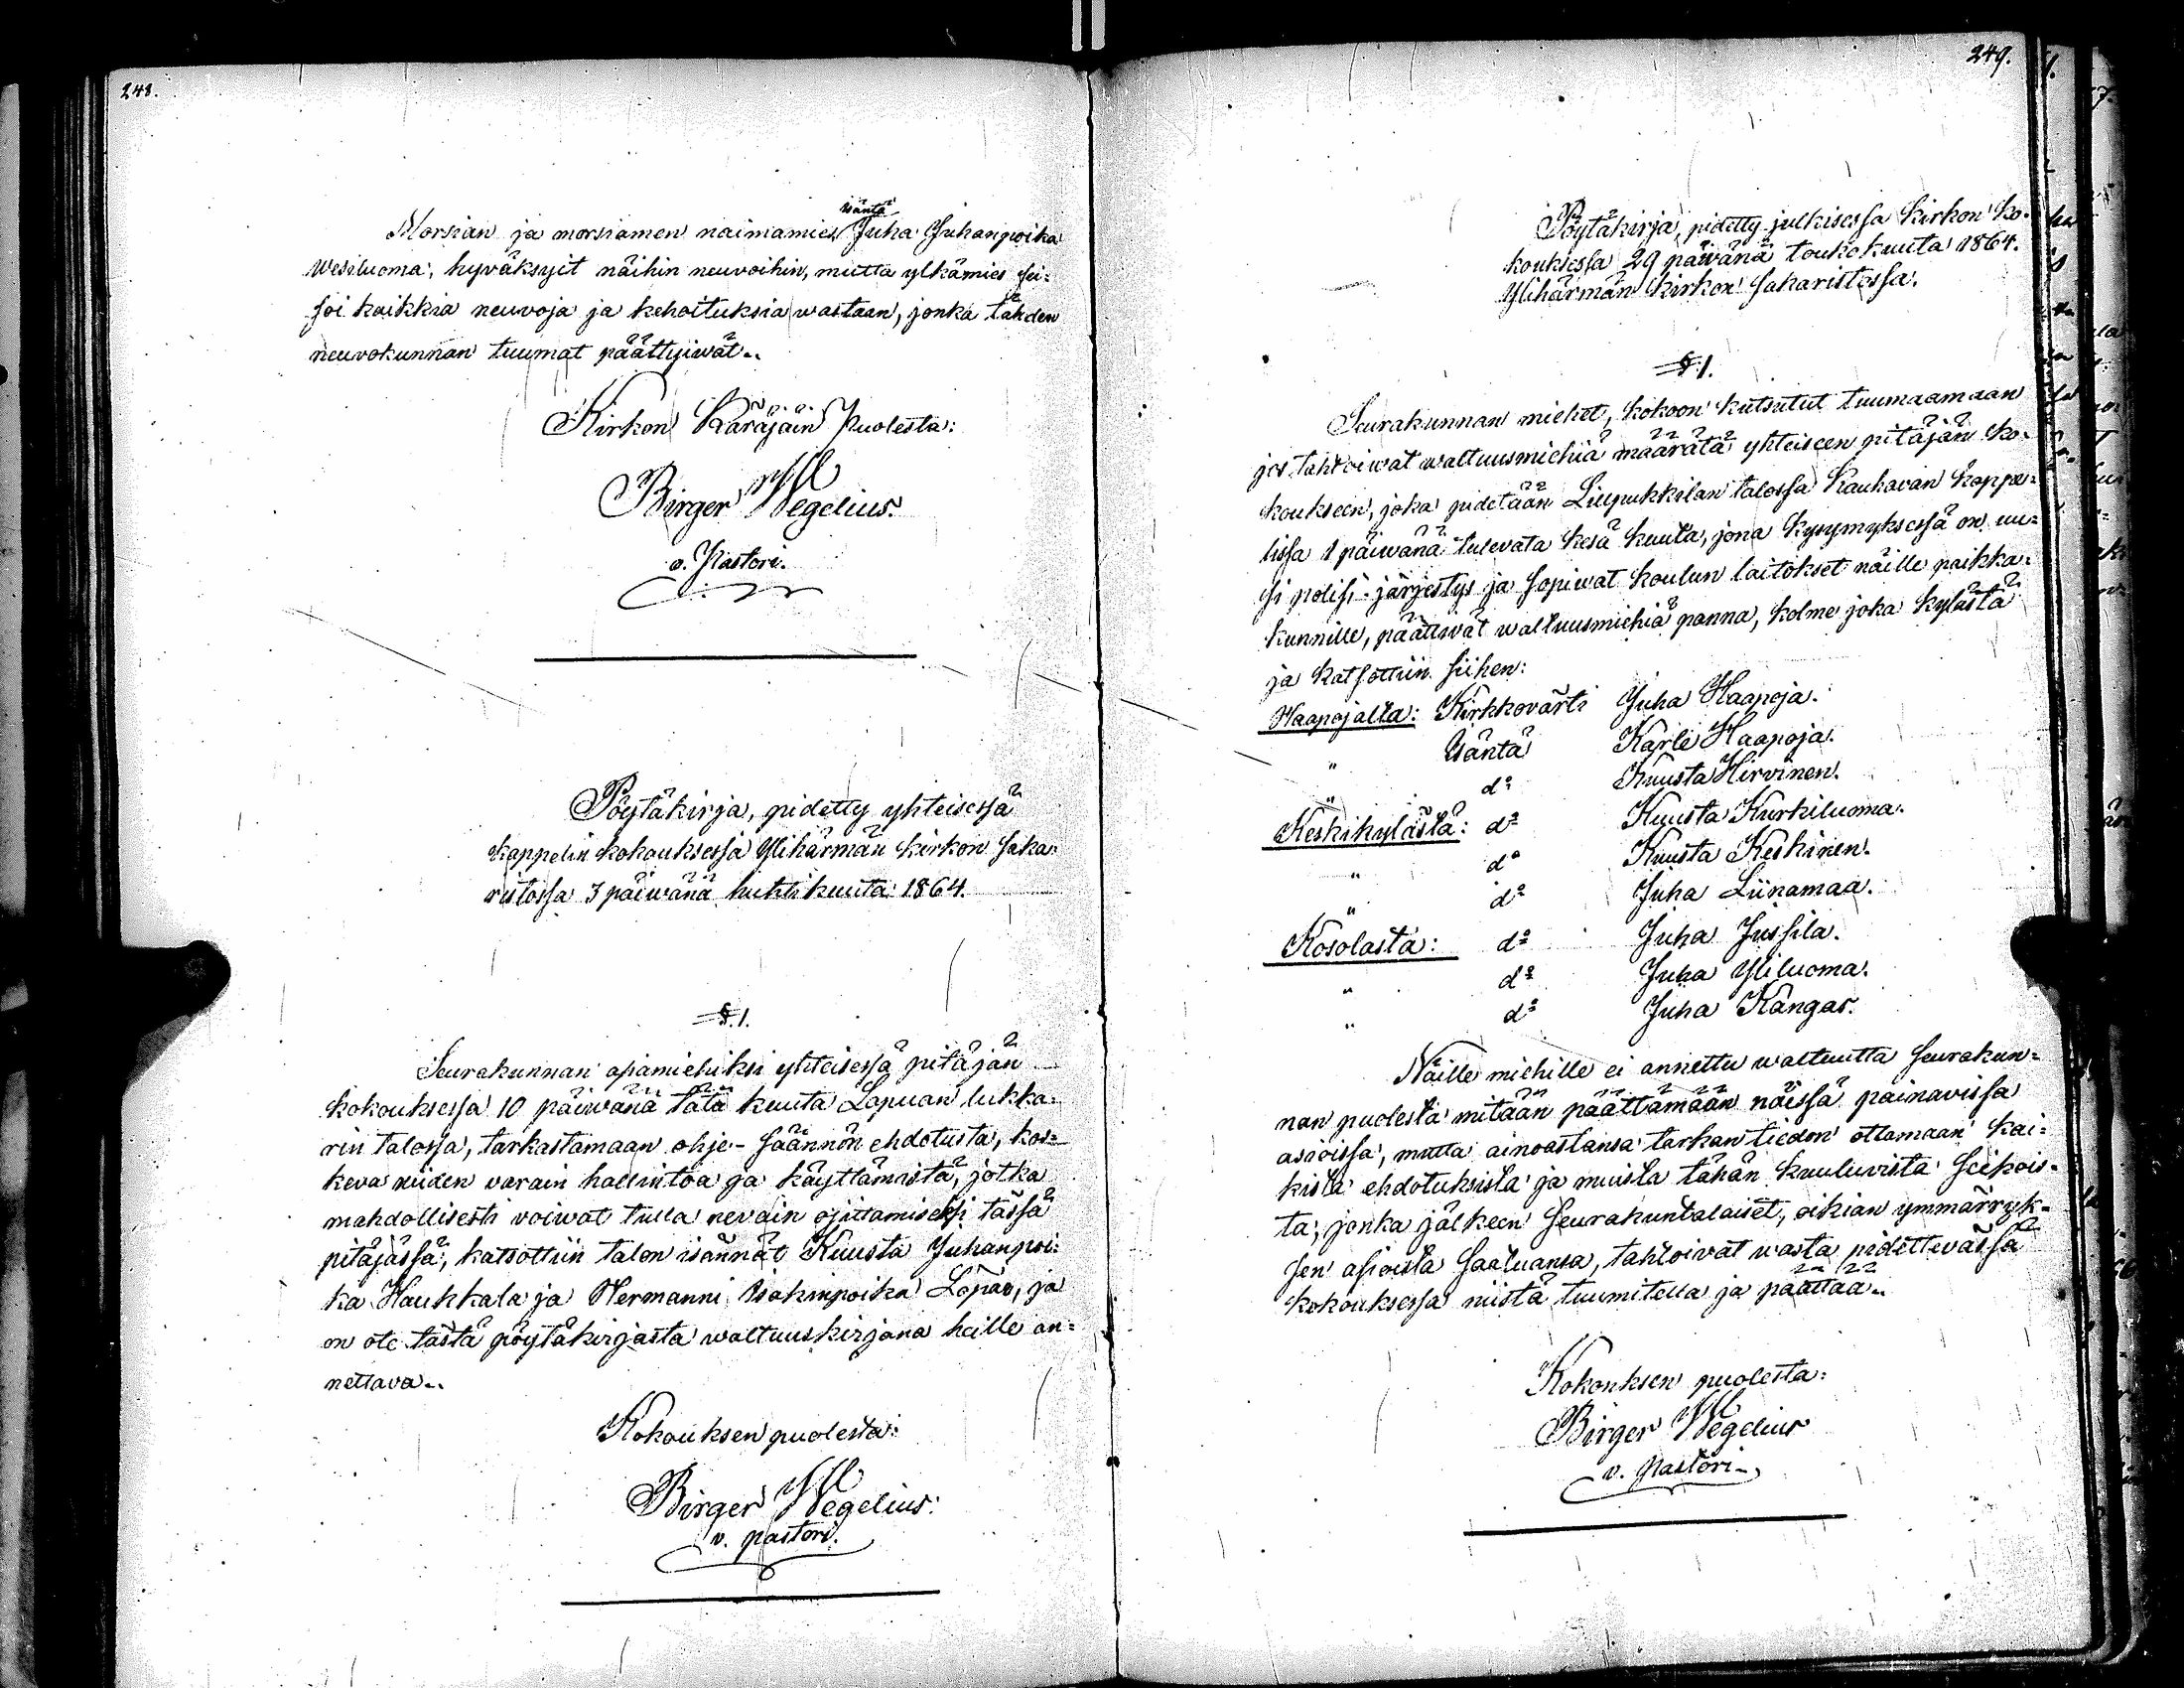 248.
Morsian ja morsiamen naimamies, isäntä Juha Juhanpoika
Wesiluoma, hyväksyit näihin neuvoihin, mutta ylkämies sei-
soi kaikkia neuvoja ja kehoituksia wastaan, jonka tähden
neuvokunnan tuumat päättyiwät..
Kirkon Käräjäin puolesta:
Birger Wegelius.
v. Pastori.
Pöytäkirja, pidetty yhteisessä
kappelin kokouksessa Ylihärmän kirkon saka-
ristossa 3 päiwänä huhtikuuta 1864.
§. 1.
Seurakunnan asiamiehiksi yhteisessä pitäjän
kokouksessa 10 päiwänä tätä kuuta Lapuan lukka-
rin talossa, tarkastamaan ohje-säännön ehdotusta, kos-
keva niiden varain hallintoa ja käyttämistä, jotka
mahdollisesti voiwat tulla nevain ojittamiseksi tässä
pitäjässä, katsottiin talon isännät Kuusta Juhanpoi-
ka Haukkala ja Hermanni Isakinpoika Lopas, ja
on ote tästä pöytäkirjasta waltuuskirjana heille an-
nettava..
Kokouksen puolesta:
Birger Wegelius.
v. pastori.
249.
Pöytäkirja, pidetty julkisessa Kirkon ko-
kouksessa 29 päiwänä toukokuuta 1864.
Ylihärmän kirkon sakaristossa.
§. 1.
Seurakunnan miehet, kokoon kutsutut tuumaamaan
jos tahtoiwat waltuusmiehiä määrätä yhteiseen pitäjän ko-
koukseen, joka pidetään Liipukkilan talossa Kauhavan kappe-
lissa 1 päiwänä tulevata kesä kuuta, jona kysymyksessä on uu-
si polisi-järjestys ja sopiwat koulun laitokset näille paikka-
kunnille, päättiwät waltuusmiehiä panna, kolme joka kylästä
ja katsottiin siihen:
Haapojalta: Kirkkovärti Juha Haapoja.
" Isäntä Karle Haapoja.
" do Kuusta Hirvinen.
Keskikylästä: do Kuusta Kurkiluoma.
" do Kuusta Keskinen.
" do Juha Liinamaa.
Kosolasta: do Juha Jussila.
" do Juha Yliluoma.
" do Juha Kangas.
Näille miehille ei annettu waltuutta seurakun-
nan puolesta mitään päättämään näissä painavissa
asioissa, mutta ainoastansa tarkan tiedon ottamaan kai-
kista ehdotuksista ja muista tähän kuuluvista seikois-
ta, jonka jälkeen seurakuntalaiset, oikian ymmärryk-
sen asioista saatuansa, tahtoivat wasta pidettewässä
kokouksessa niistä tuumitella ja päättää..
Kokouksen puolesta:
Birger Wegelius
v. Pastori